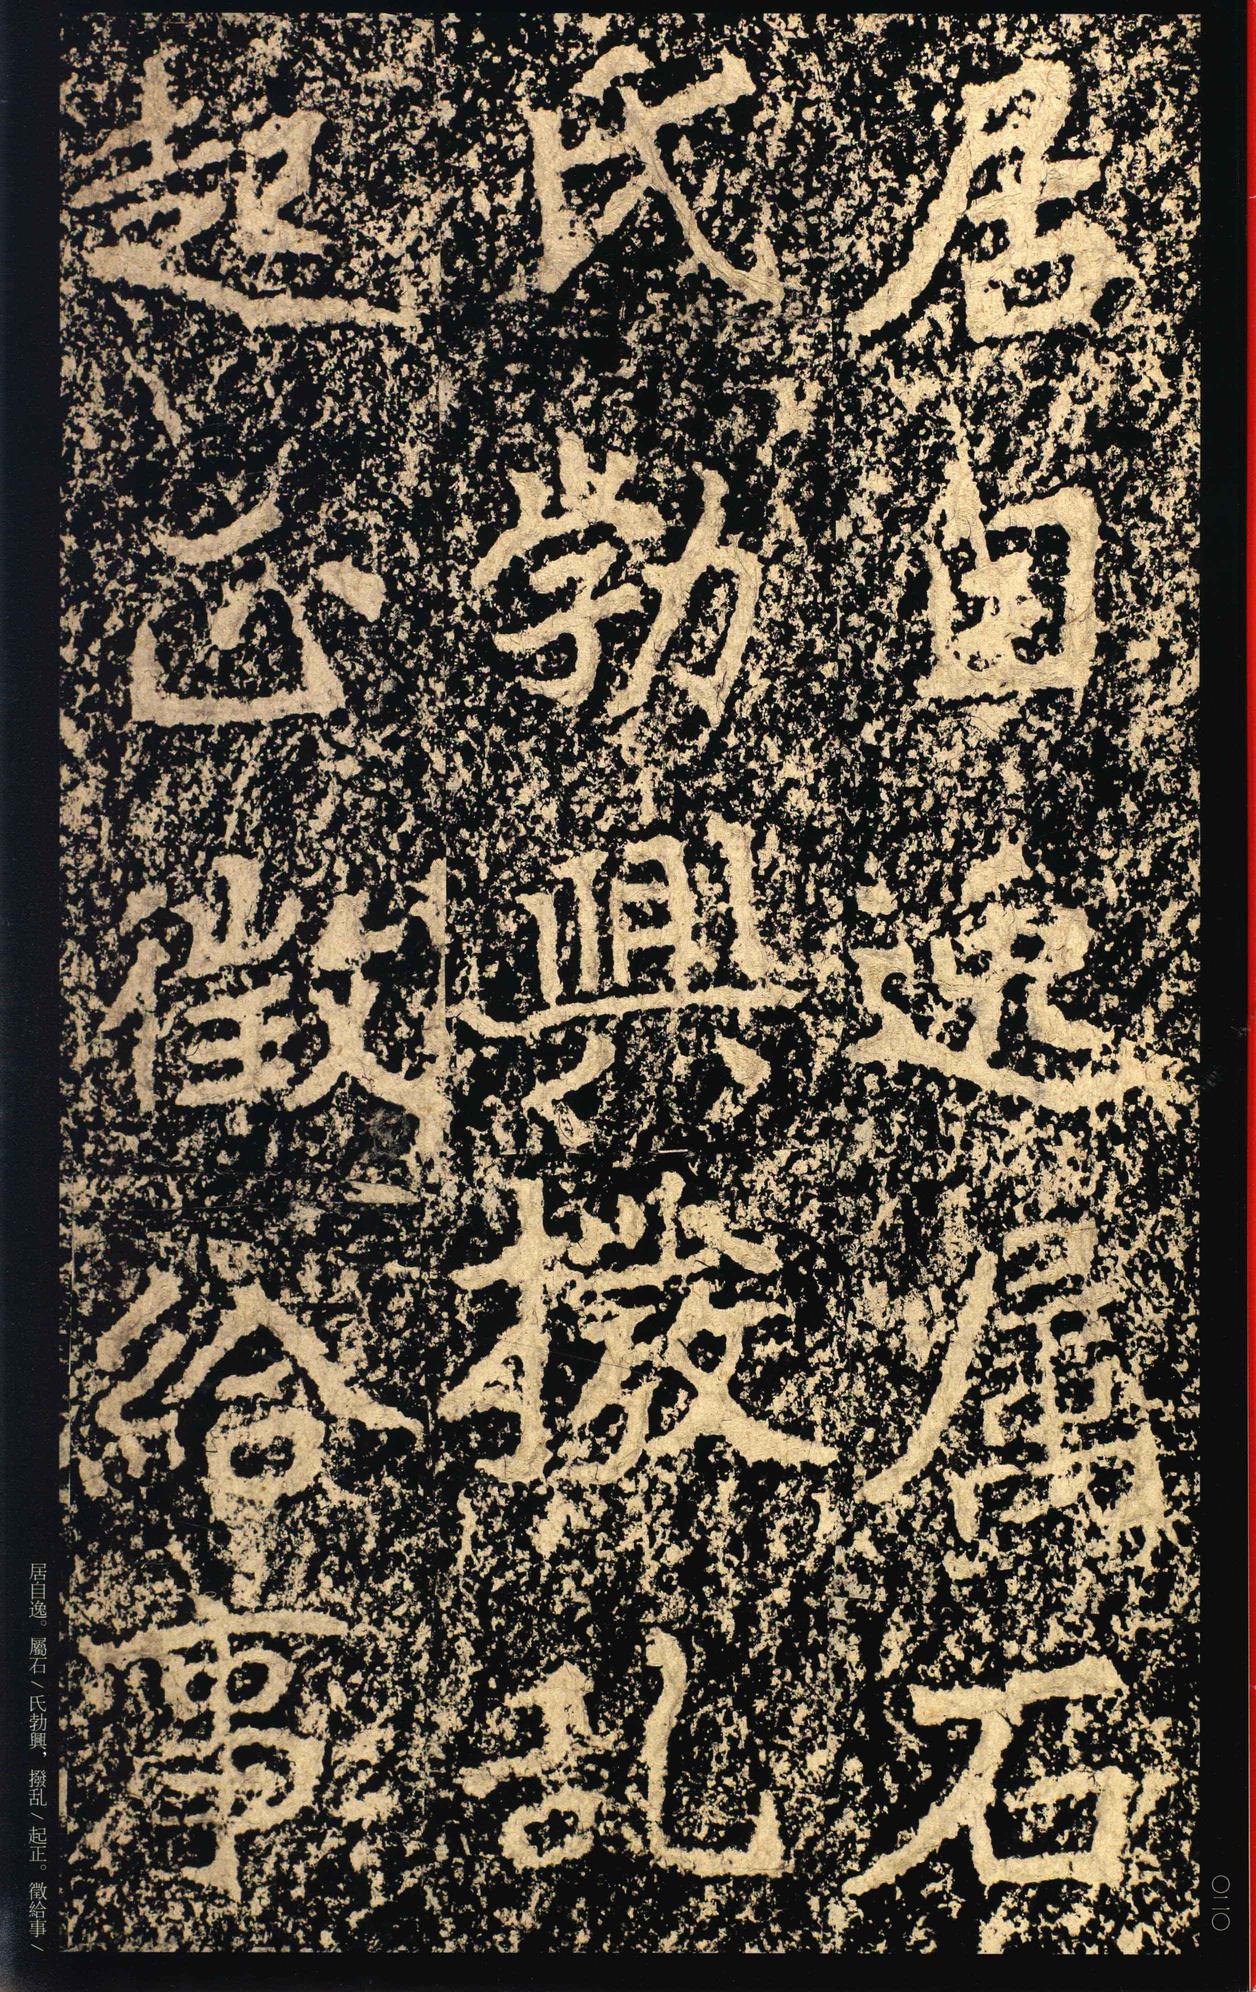 居自逸屬石
氏勃興撥乱
起正徵給事
居自逸。屬石/氏勃興，撥乱/起正。徵給事/
〇二〇